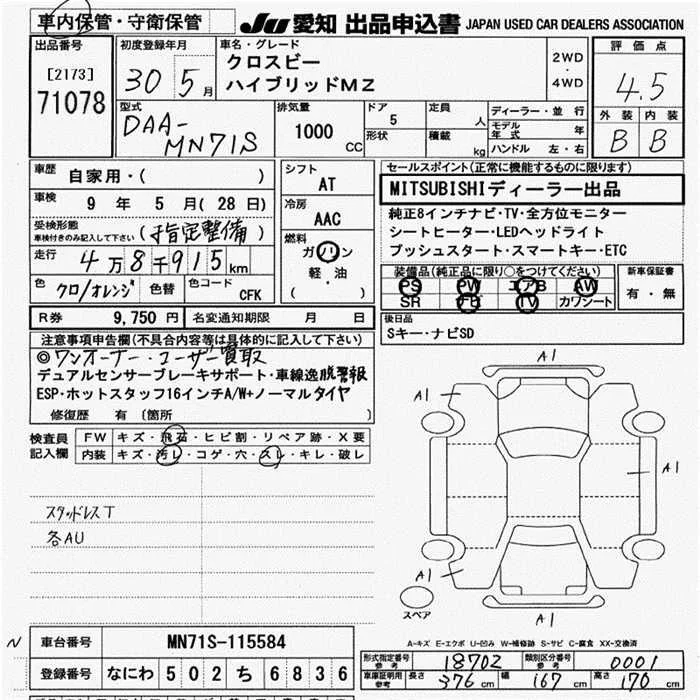 車内保管・守衛保管
JU 愛知 出品申込書 JAPAN USED CAR DEALERS ASSOCIATION
出品番号
[2173]
71078
初度登録年月
30 5月
車名・グレード
クロスビー
ハイブリッドMZ
2WD
・
4WD
評価点
4.5
外装 内装
B B
型式
DAA-
MN71S
排気量
1000 CC
ドア
5
形状
定員
人
積載
kg
ディーラー・並行
モデル年式 年
ハンドル 左・右
車歴
自家用・( )
車検
9 年 5 月 (28 日)
受検形態
車検付きのみ記入して下さい
(指定整備)
走行
4万8千915km
色
クロ/オレンジ
色替
色コード
CFK
シフト
AT
冷房
AAC
燃料
ガソリン
軽・油
( )
セールスポイント(正常に機能するものに限ります)
MITSUBISHIディーラー出品
純正8インチナビ・TV・全方位モニター
シートヒーター・LEDヘッドライト
プッシュスタート・スマートキー・ETC
装備品(純正品に限り○をつけてください)
PS PW エアB AW
SR FB TV カワシート
新車保証書
有・無
R券 9,750 円
名変通知期限 月 日
後日品
Sキー・ナビSD
注意事項申告欄(不具合内容等は具体的に記入して下さい)
◎ワンオーナー・ユーザー買取
デュアルセンサーブレーキサポート・車線逸脱警報
ESP・ホットスタッフ16インチA/W+ノーマルタイヤ
修復歴 有 〔箇所 〕
検査員
記入欄
FW キズ・飛石・ヒビ割・リペア跡・X要
内装 キズ・汚レ・コゲ・穴・スレ・キレ・破レ
スタッドレスT
各AU
A1
A1
A1
A1
A1
A1
スペア
A-キズ E-エクボ U-凹み W-補修跡 S-サビ C-腐食 XX-交換済
N
車台番号 MN71S-115584
登録番号 なにわ 502 ち 6836
形式指定番号
参考
18702
類別区分番号
参考
0001
車庫証明用
参考
長さ 376cm
幅 167cm
高さ 170cm